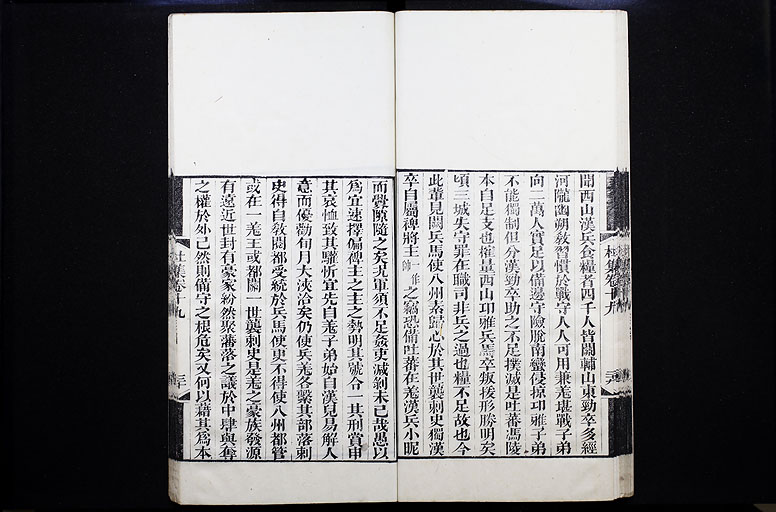 聞西山漢兵食糧者四千人皆關輔山東勁卒多經
河隴幽朔敎習慣於戰守人人可用兼羌堪戰子弟
向二萬人實足以備邊守險脫南蠻侵掠邛雅子弟
不能獨制但分漢勁卒助之不足撲滅是吐蕃馮陵
本自足支也搉量西山邛雅兵馬卒叛援形勝明矣
頃三城失守罪在職司非兵之過也糧不足故也今
此輩見闕兵馬使八州素歸心於其世襲刺史獨漢
卒自屬裨將主一作帥之竊恐備吐蕃在羌漢兵小昵
而釁隙隨之矣況軍須不足姦吏減剝未已哉愚以
爲宜速擇偏裨主之主之勢明其號令一其刑賞申
其哀恤致其驩忻宜先自羌子弟始自漢兒易解人
意而優勸旬月大浹洽矣仍使兵羌各繫其部落刺
史得自敎閱都受統於兵馬使更不得使八州都管
或在一羌王或都關一世襲刺史是羌之豪族發源
有遠近世封有豪家紛然聚藩落之議於中肆與奪
之權於外已然則備守之根危矣又何以藉其爲本
杜集卷十九
杜集卷十九